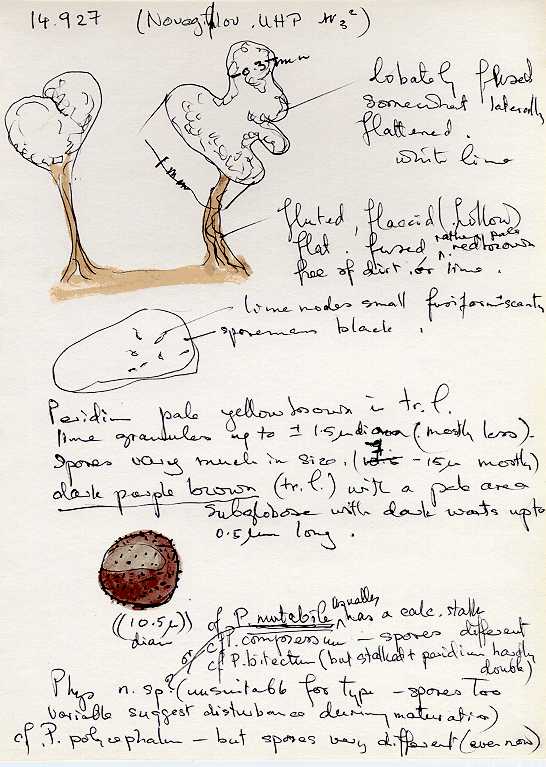 14.927 (Novozhilov. UHP
0.3 mm
1 mm
lobately fused
somewhat laterally
flattened.
white lime
fluted, flaccid (hollow)
flat. fused rather pale
red brown
free of dirt. or lime.
lime nodes small fusiform scanty
sporemass black.
Peridium pale yellow brown in tr. l.
lime granules up to ± 1.5µ diam (mostly less).
Spores vary much in size. ( - 15µ mostly)
dark purple brown (tr. l.) with a pale area
Subglobose with dark warts up to
0.5 µm long.
((10.5µ)) diam
cf P. mutabile usually has a calc. stalk
cf P. compressum - spores different
or cf P. bitectum (but stalked + peridium hardly
double)
Phys n. sp? (unsuitable for type - spores too
variable suggest disturbance during maturation)
cf. P. polycephalum - but spores very different (even now)